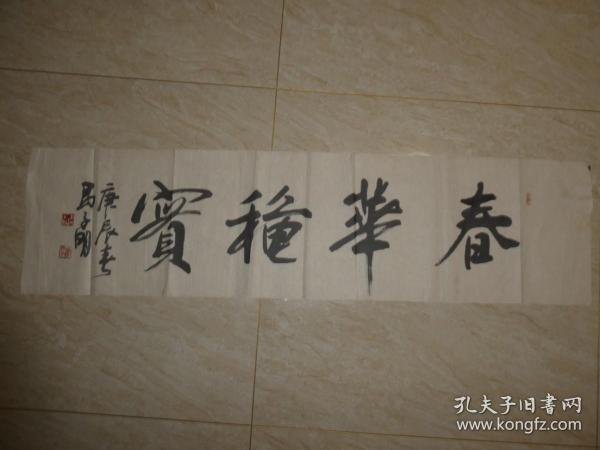 春華穐實
庚辰春
馬子明
孔夫子旧書网
www.kongfz.com